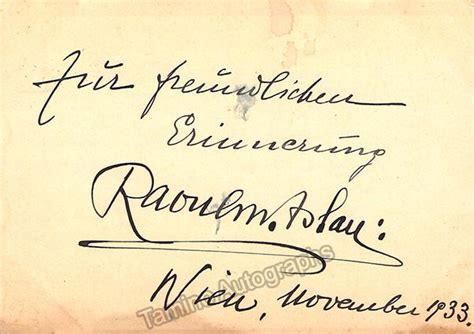 Zur freundlichen
Erinnerung
Raoul Aslan:
Tamino Autographs
Wien, November 1933.